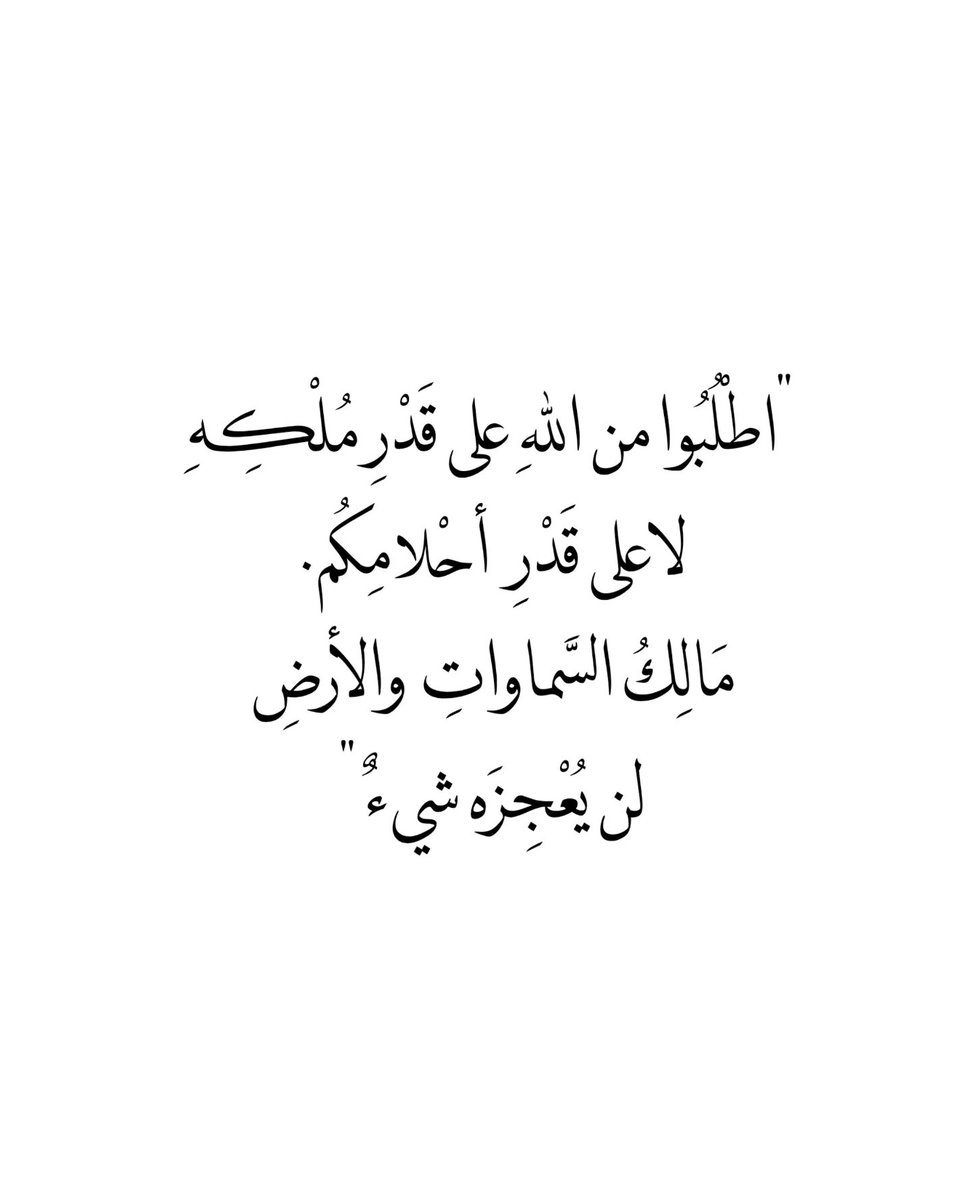 "اطْلُبُوا من اللهِ على قَدْرِ مُلْكِهِ
لا على قَدْرِ أحْلامِكُم.
مَالِكُ السَّماواتِ والأرضِ
لن يُعْجِزَه شيءٌ"